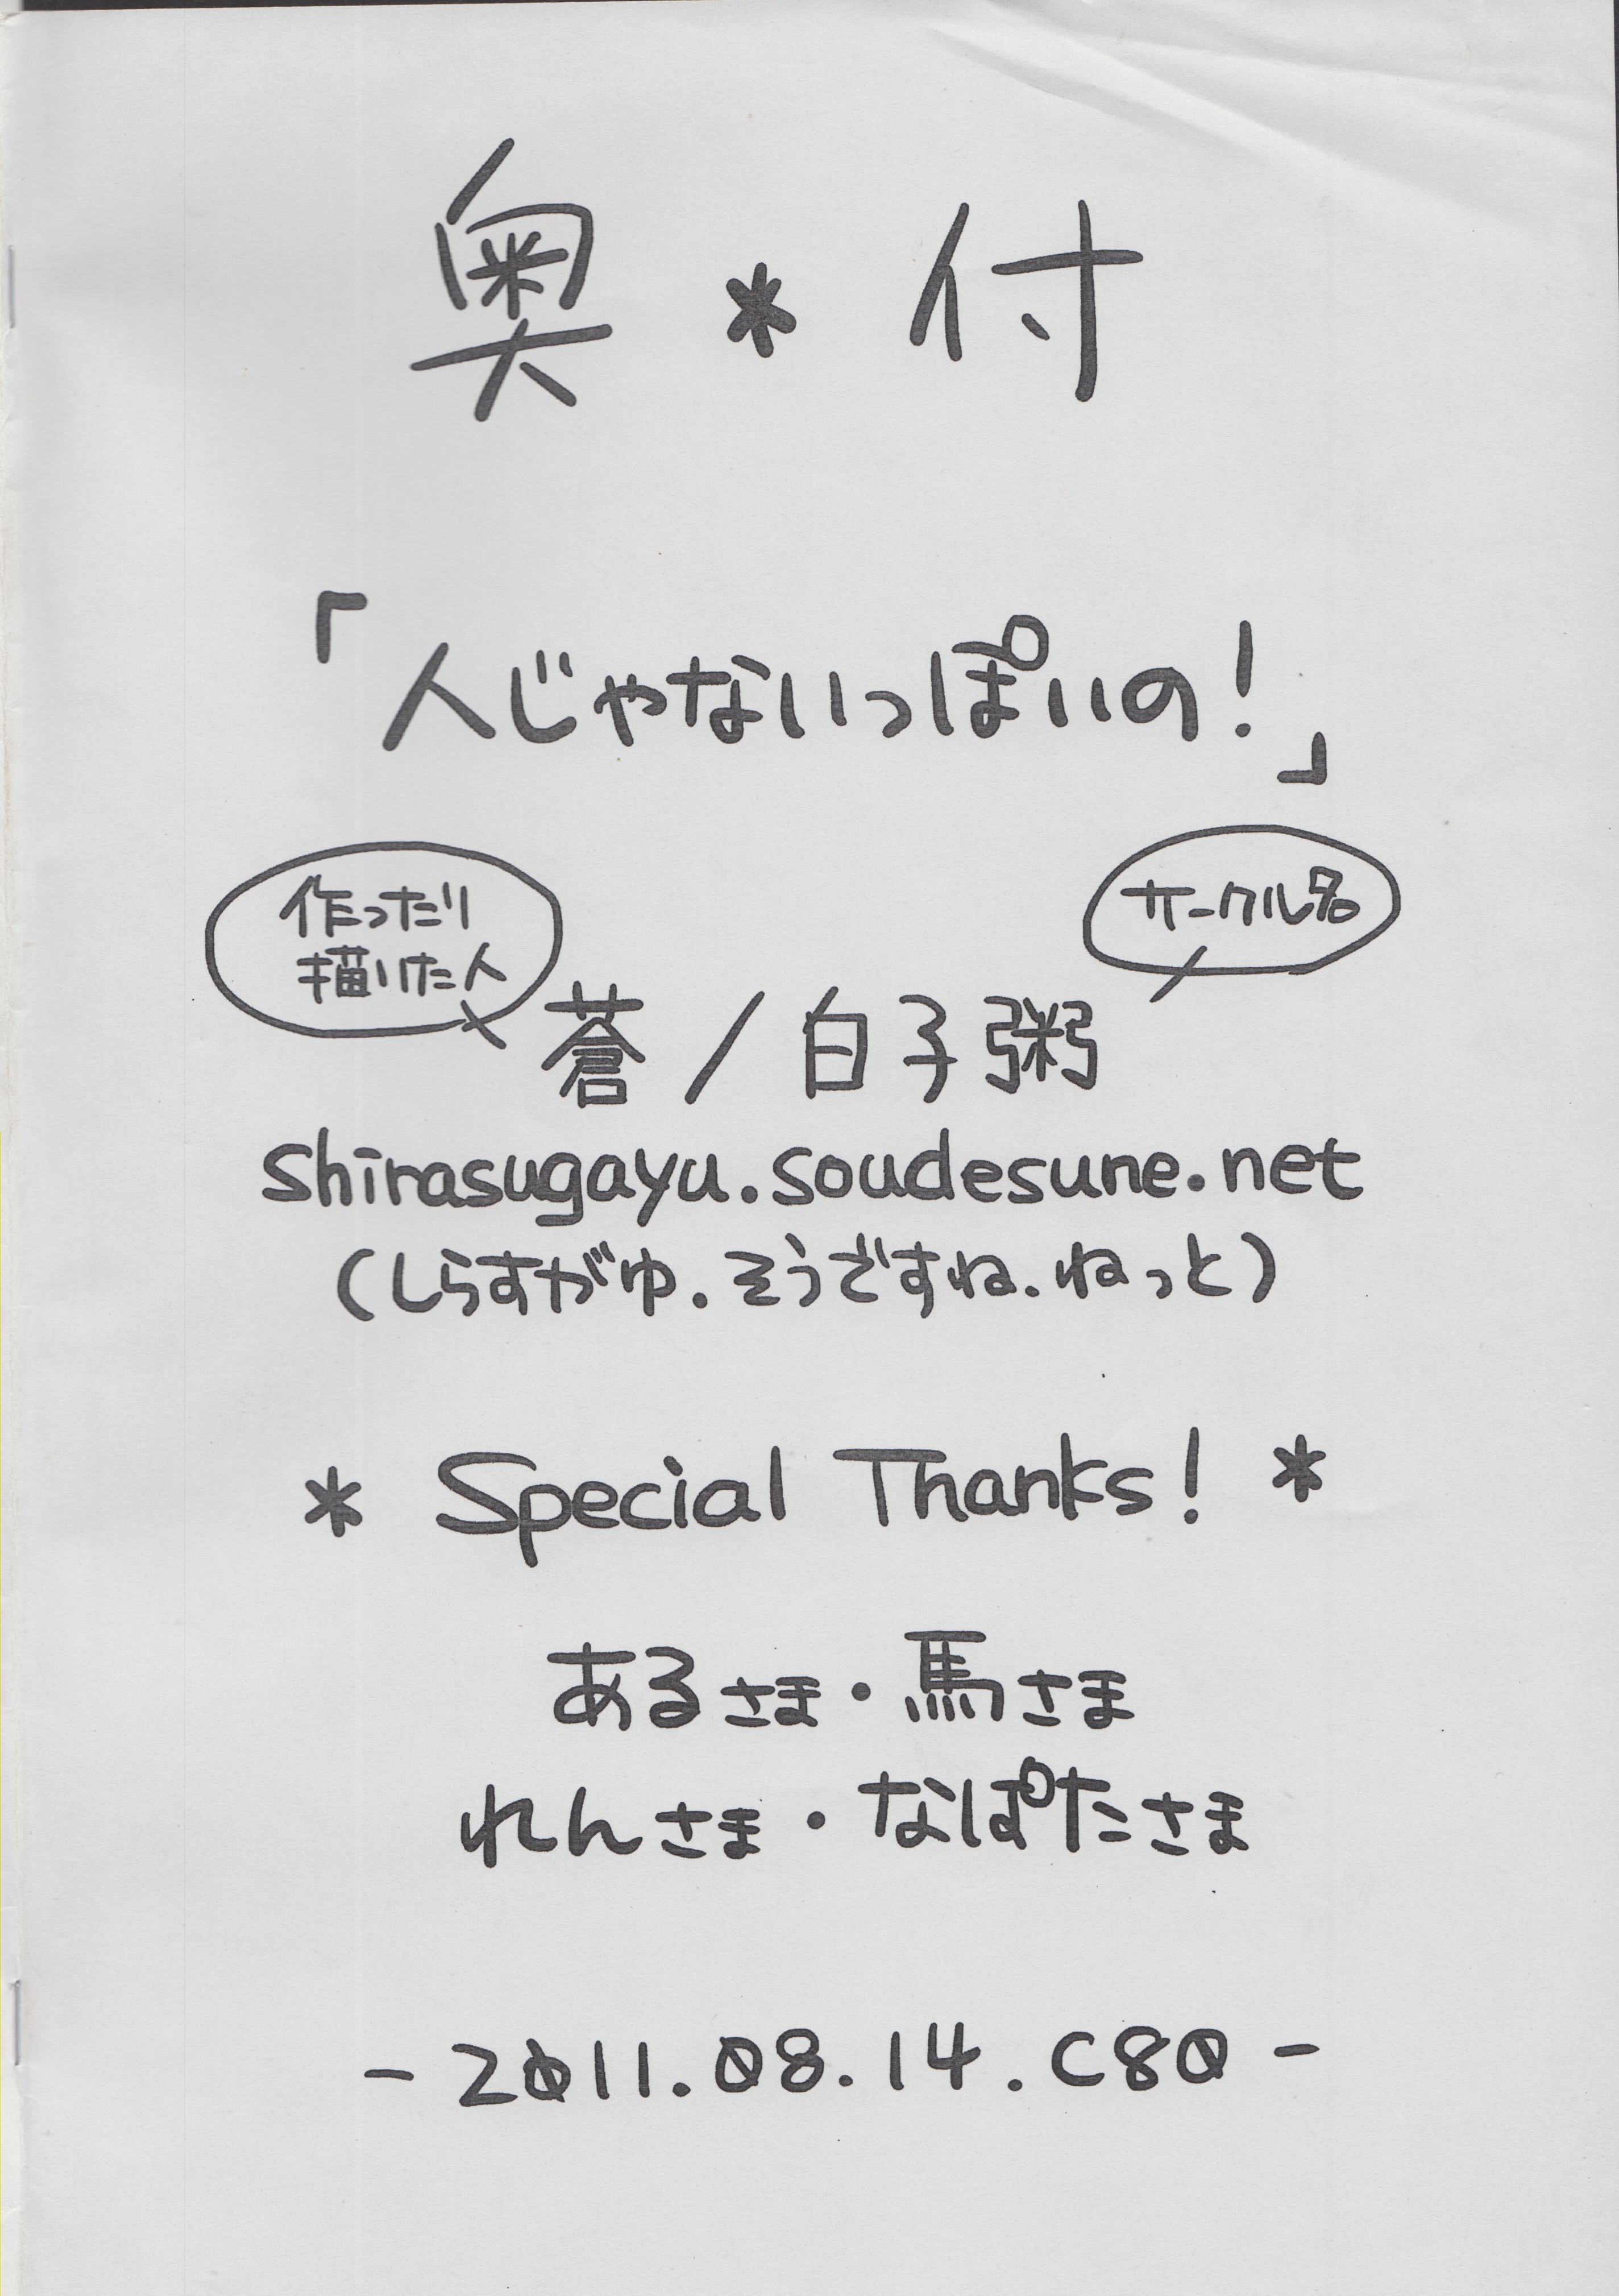 奥*付
「人じゃないっぽいの!」
作ったり
描いた人
サークル名
蒼/白子粥
shirasugayu.soudesune.net
(しらすがゆ.そうですね.ねっと)
* Special Thanks! *
あるさま・馬さま
れんさま・なぽたさま
- 2011.08.14.C80 -